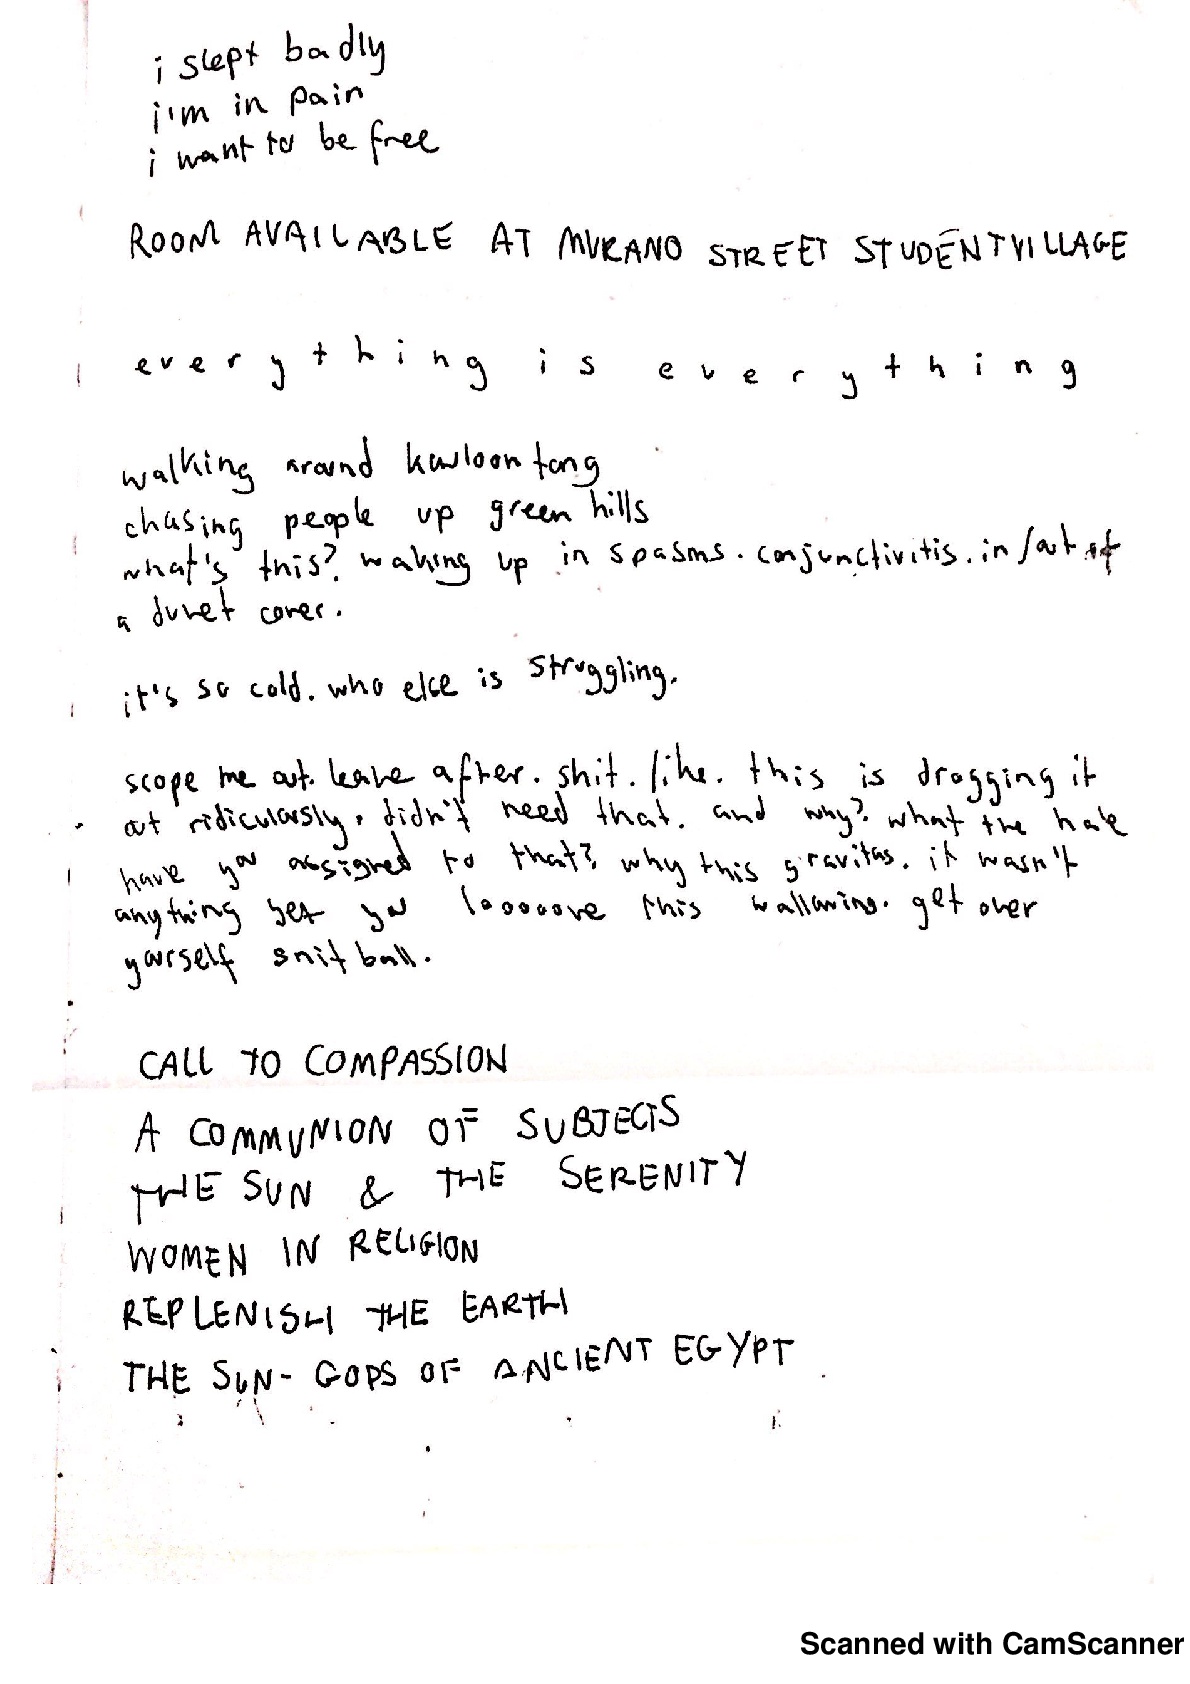 i slept badly
i'm in pain
i want to be free
ROOM AVAILABLE AT MURANO STREET STUDENTVILLAGE
everything is everything
walking around kowloon tong
chasing people up green hills
what's this? waking up in spasms. conjunctivitis. in/out of
a duvet cover.
it's so cold. who else is struggling.
scope me out. leave after. shit. like. this is dragging it
out ridiculously. didn't need that. and why? what the hate
have you assigned to that? why this gravitas. it wasn't
anything yet you looooove this wallowing. get over
yourself snitball.
CALL TO COMPASSION
A COMMUNION OF SUBJECTS
THE SUN & THE SERENITY
WOMEN IN RELIGION
REPLENISH THE EARTH
THE SUN-GODS OF ANCIENT EGYPT
Scanned with CamScanner